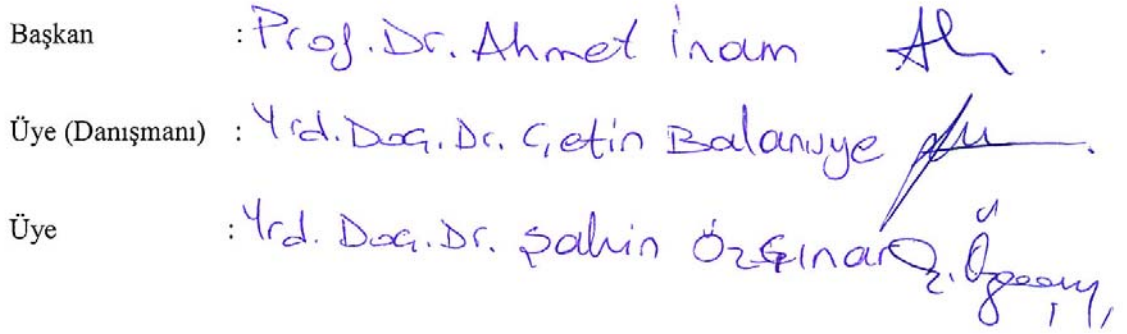 Başkan : Prof. Dr. Ahmet İnam
Üye (Danışmanı) : Yrd. Doç. Dr. Çetin Balanuye
Üye : Yrd. Doç. Dr. Şahin Özçınar